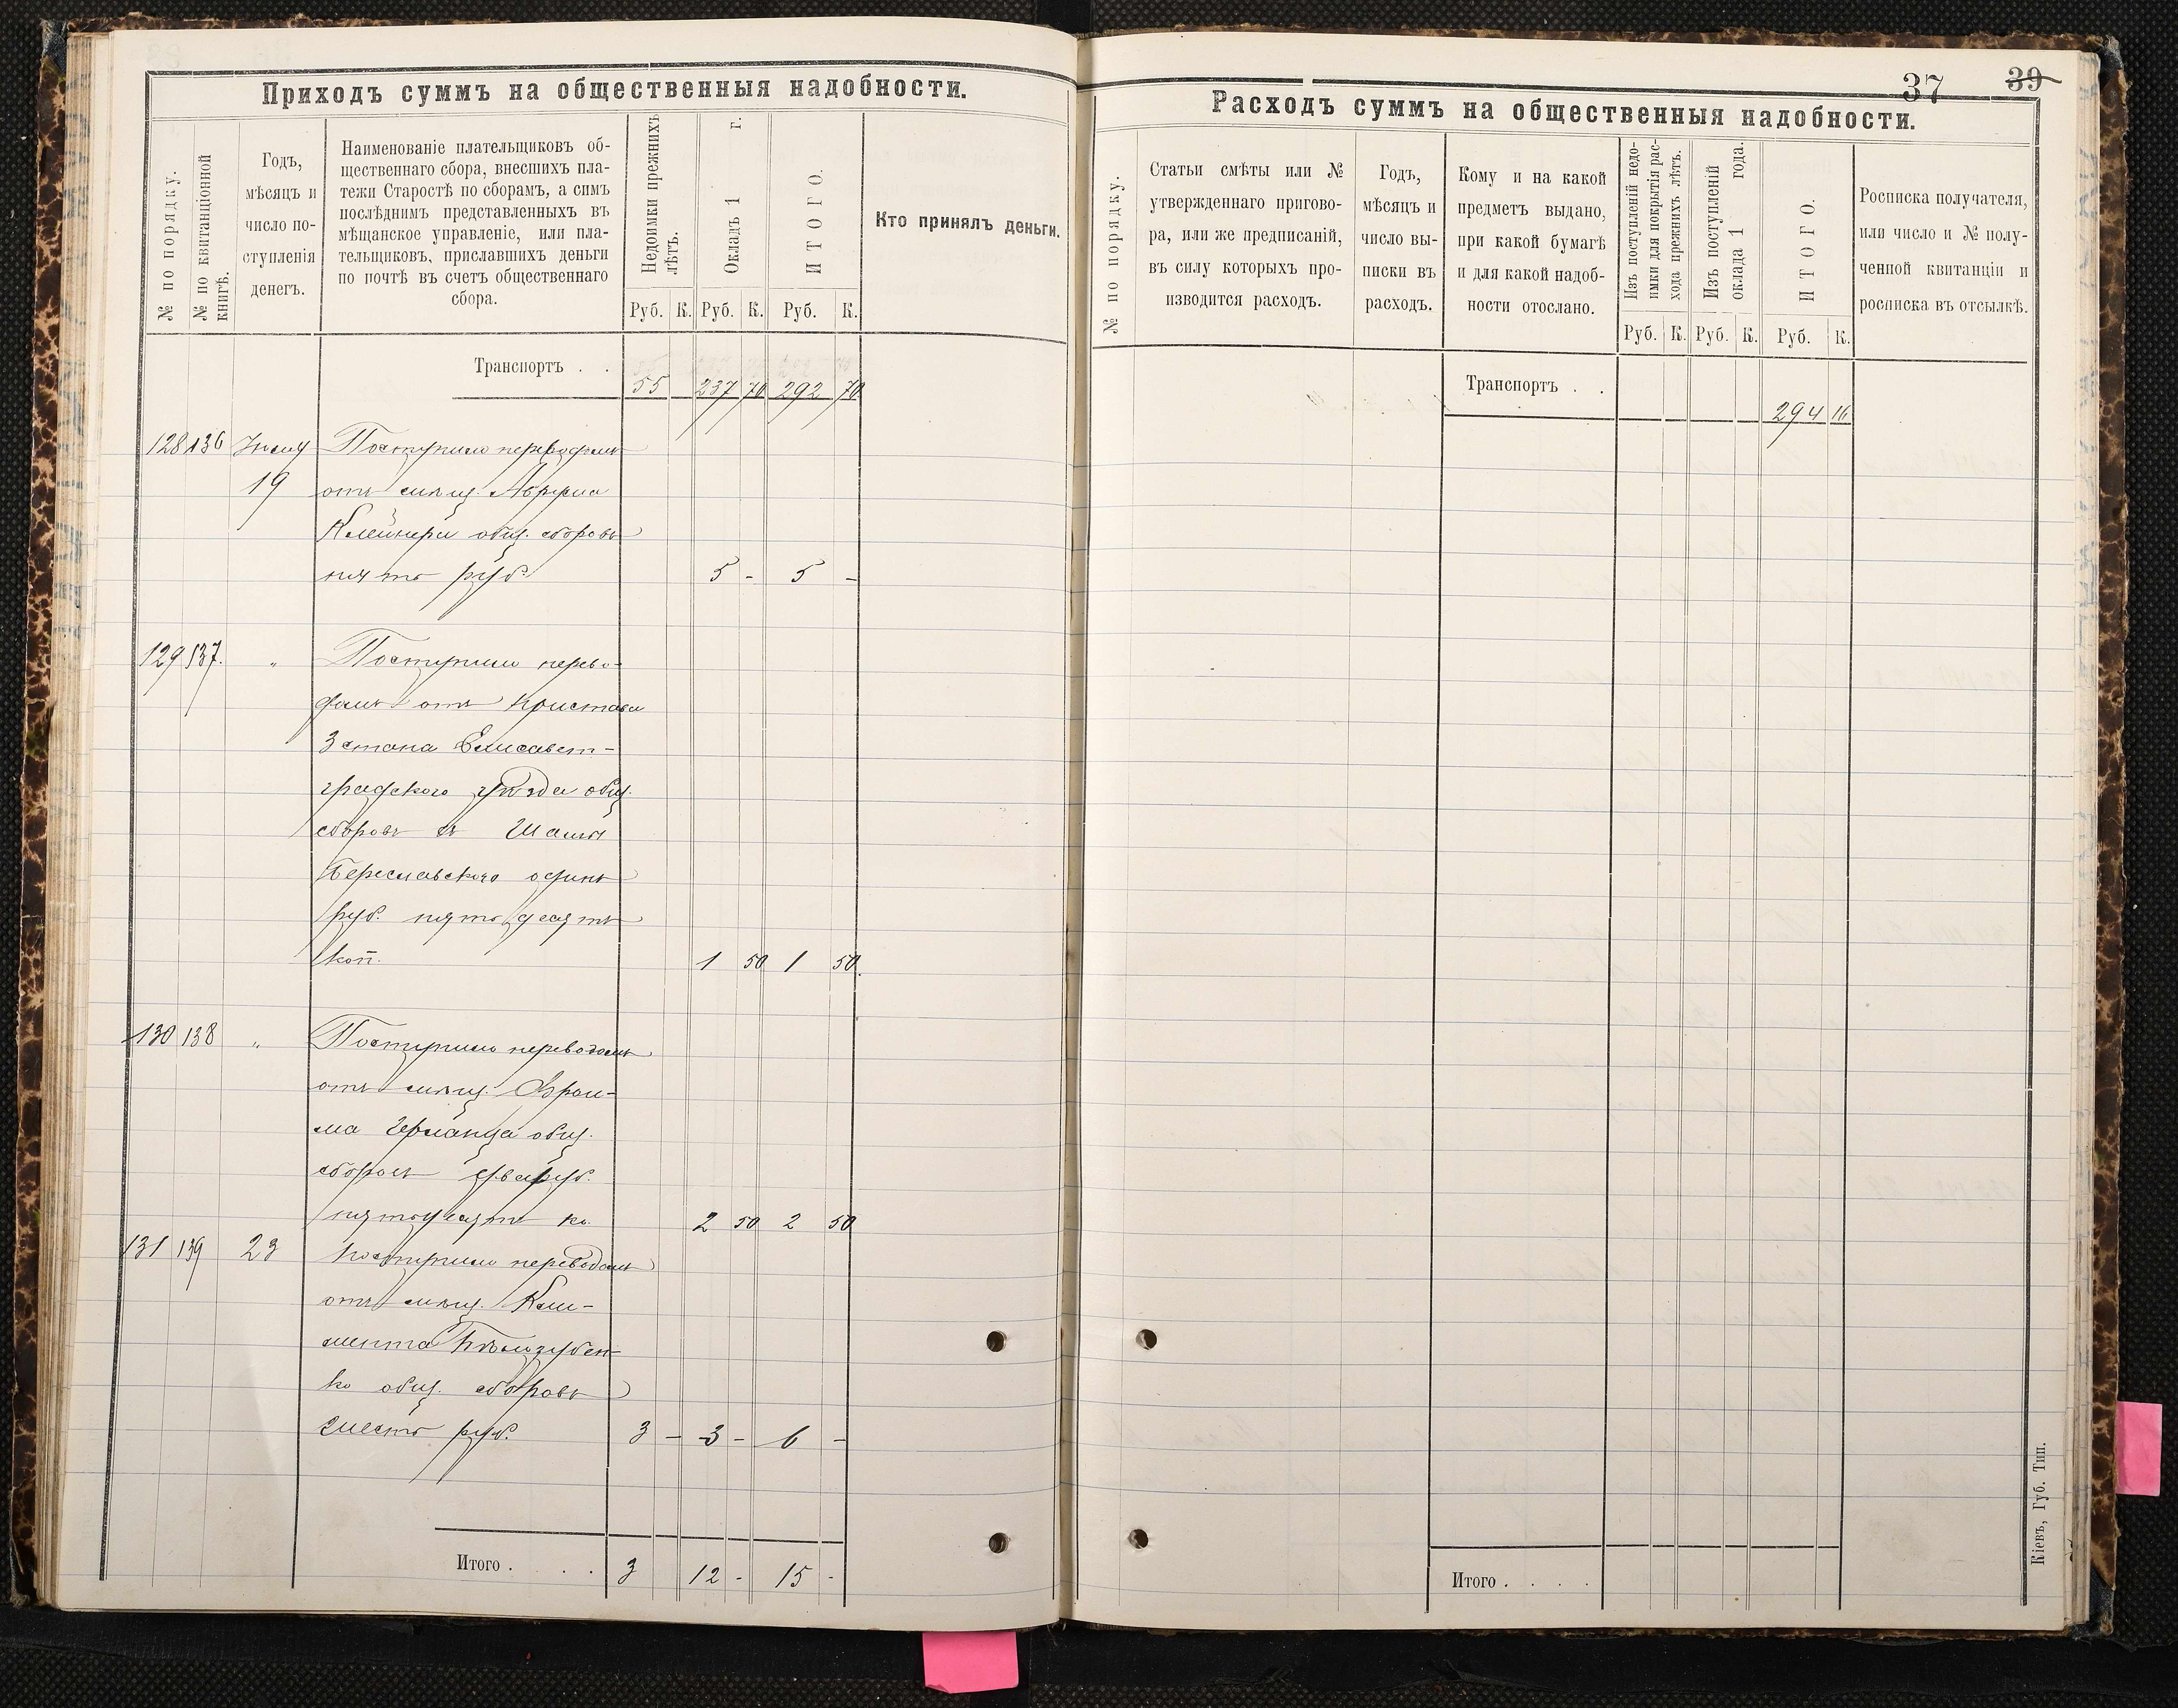 Приходъ суммъ на общественныя надобности.
№ по порядку.
№ по квитанціонной
книгѣ.
Годъ,
мѣсяцъ и
число по-
ступленія
денегъ.
Наименованіе плательщиковъ об-
щественнаго сбора, внесшихъ пла-
тежи Старостѣ по сборамъ, а симъ
послѣднимъ представленныхъ въ
мѣщанское управленіе, или пла-
тельщиковъ, приславшихъ деньги
по почтѣ въ счетъ общественнаго
сбора.
Недоимки прежнихъ
лѣтъ.
Окладъ 1 г.
ИТОГО.
Руб. К. Руб. К. Руб. К.
Кто принялъ деньги.
Транспортъ . .
55 237 70 292 70
128 136 Поступило переводомъ
19 отъ мѣщ.
Клейнера общ. сборовъ
пять руб. 5 - 5 -
129 137. " Поступило перево-
домъ отъ пристава
3 стана Елисавет-
градского уѣзда общ.
сборовъ съ
Береславского одинъ
руб. пятьдесятъ
коп. 1 50 1 50
130 138 " Поступило переводомъ
отъ мѣщ. Фрои-
ма Германца общ.
сборовъ два руб.
пятьдесятъ ко. 2 50 2 50
131 139 23 Поступило переводомъ
отъ мѣщ. Кли-
мента Бѣлозубен-
ко общ. сборовъ
шесть руб. 3 - 3 - 6 -
Итого . . . . 3 12 - 15 -
37 39
Расходъ суммъ на общественныя надобности.
№ по порядку.
Статьи смѣты или №
утвержденнаго пригово-
ра, или же предписаній,
въ силу которыхъ про-
изводится расходъ.
Годъ,
мѣсяцъ и
число вы-
писки въ
расходъ.
Кому и на какой
предметъ выдано,
при какой бумагѣ
и для какой надоб-
ности отослано.
Изъ поступленій недо-
имки для покрытія рас-
хода прежнихъ лѣтъ.
Изъ поступленій
оклада 1 года.
ИТОГО.
Руб. К. Руб. К. Руб. К.
Росписка получателя,
или число и № полу-
ченной квитанціи и
росписка въ отсылкѣ.
Транспортъ . .
294 16
Итого . . . .
Кіевъ, Губ. Тип.